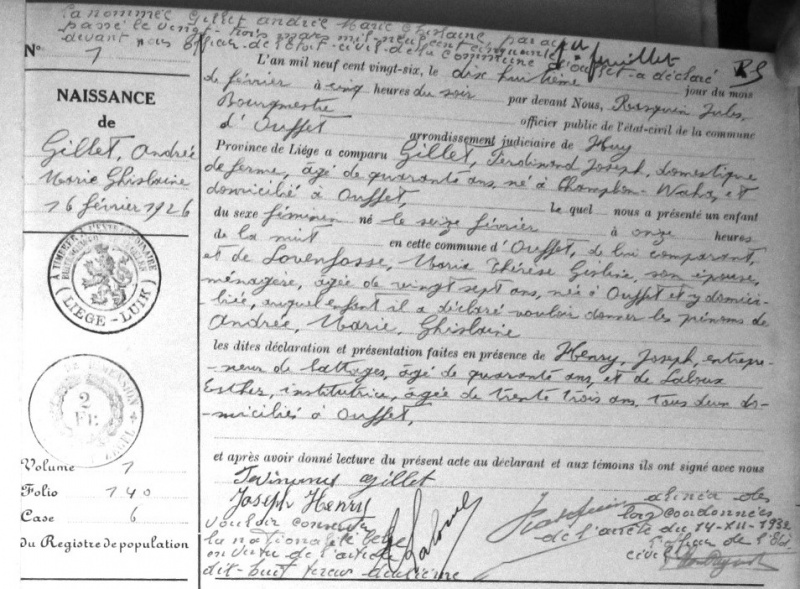 La nommée Gillet Andrée Marie Ghislaine, par acte
passé le vingt-trois mars mil neuf cent cinquante
devant nous officier de l'état-civil de la commune d'Ouffet a déclaré
1er feuillet
RJ
N° 1
NAISSANCE
de
Gillet, Andrée
Marie Ghislaine
16 février 1926
A TIMBRER A L'EXTRAORDINAIRE
LIEGE-LUIK
DIMENSION
2
FR.
Volume 1
Folio 140
Case 6
du Registre de population
L'an mil neuf cent vingt-six, le dix huitième jour du mois
de février à cinq heures du soir par devant Nous, Rasquin Jules,
Bourgmestre officier public de l'état-civil de la commune
d'Ouffet arrondissement judiciaire de Huy
Province de Liége a comparu Gillet, Ferdinand Joseph, domestique
de ferme, âgé de quarante ans, né à Champlon-Waha, et
domicilié à Ouffet, le quel nous a présenté un enfant
du sexe féminin né le seize février à onze heures
de la nuit en cette commune d'Ouffet, de lui comparant,
et de Lovenfosse, Marie Thérèse Gisline, son épouse,
ménagère, âgée de vingt sept ans, née à Ouffet et y domici-
liée, auquel enfant il a déclaré vouloir donner les prénoms de
Andrée, Marie, Ghislaine
les dites déclaration et présentation faites en présence de Henry, Joseph, entrepre-
neur de battages, âgé de quarante ans, et de
Esther, institutrice, âgée de trente trois ans, tous deux do-
-miciliés à Ouffet,
et après avoir donné lecture du présent acte au déclarant et aux témoins ils ont signé avec nous
Gillet
Joseph Henry
vouloir conserver
la nationalité belge
en vertu de l'article
dix-huit
alinéa des
lois coordonnées
de l'arrêté du 14-XII-1932
L'officier de l'Etat
civil